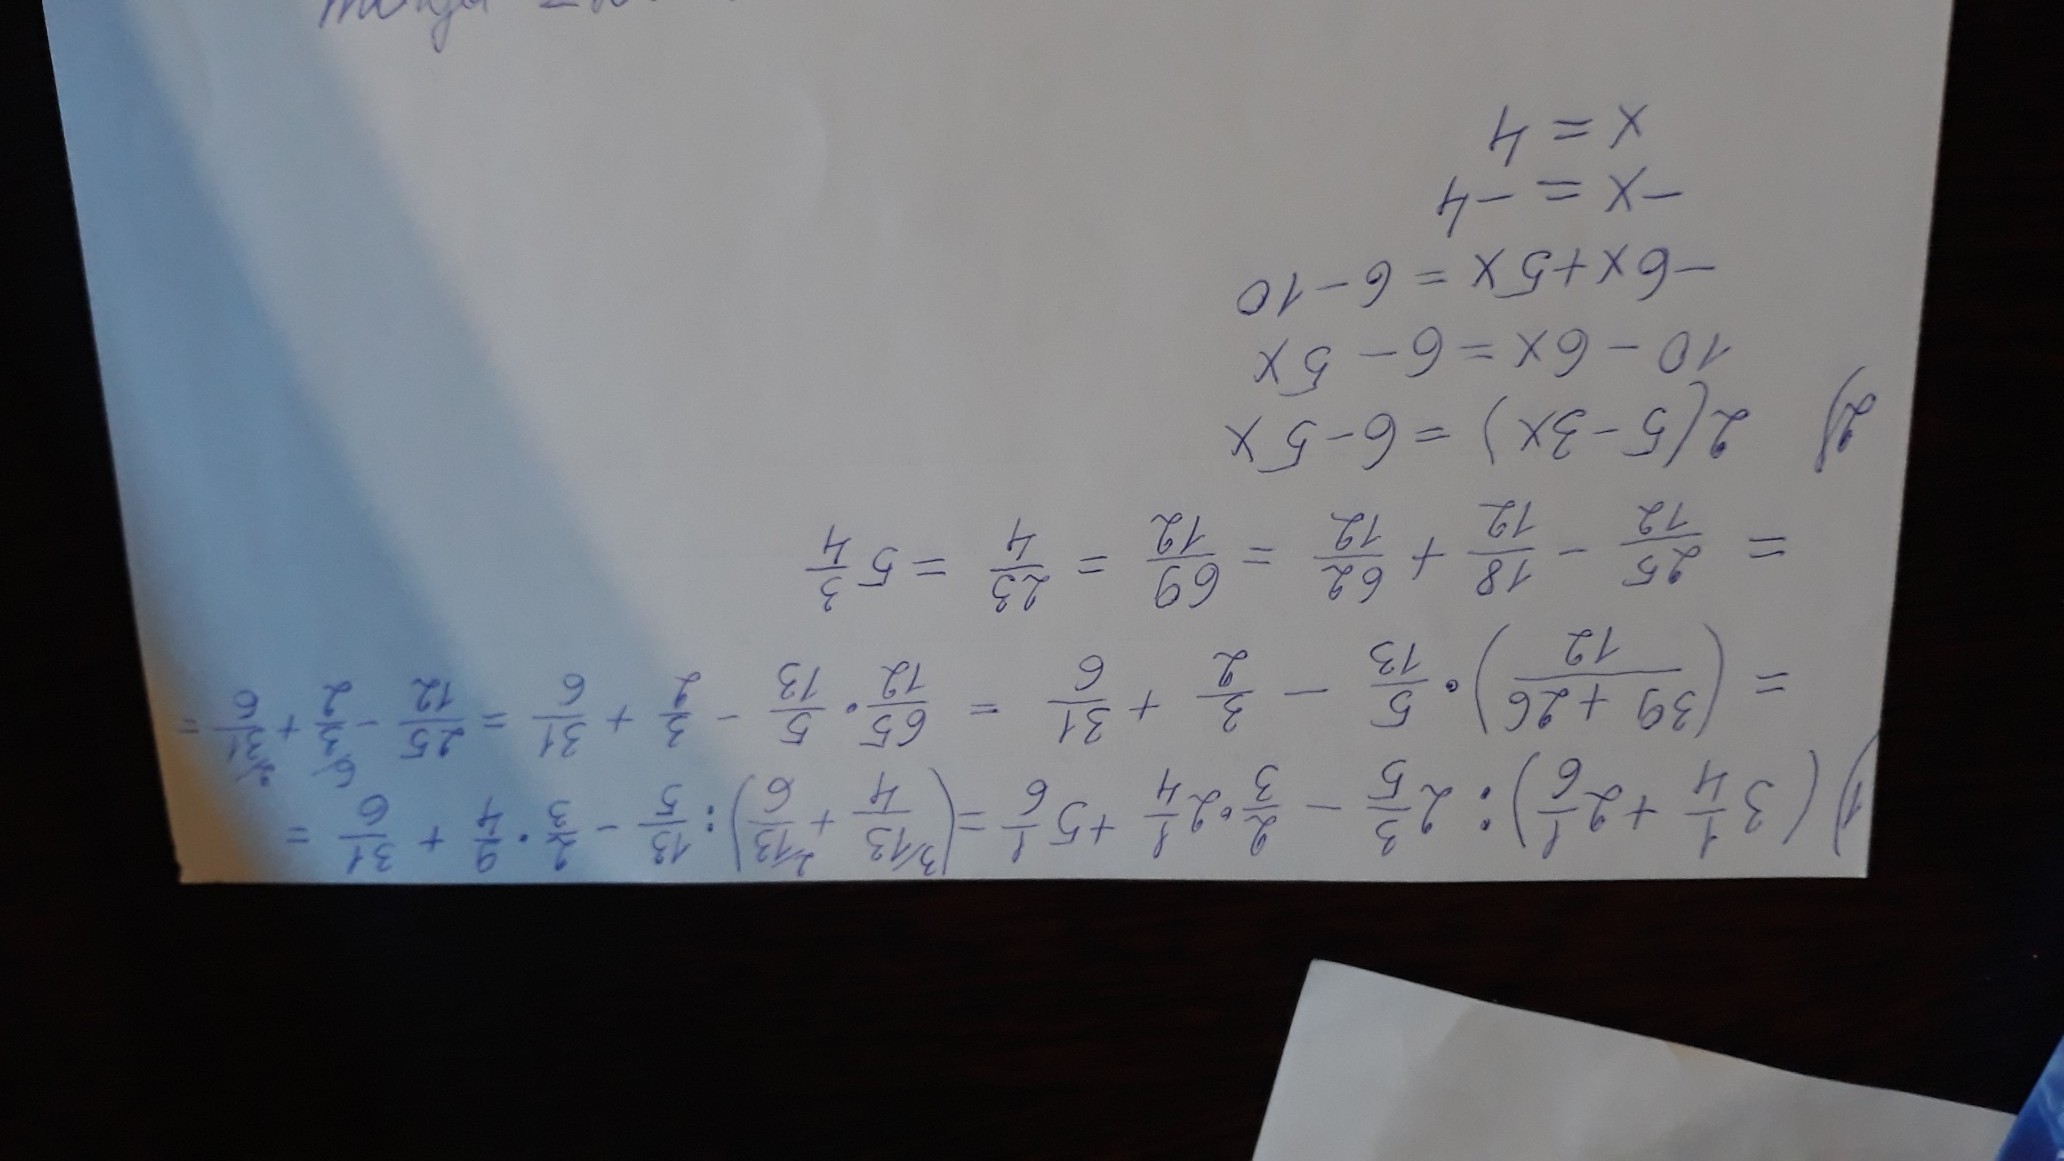 1) (3 1/4 + 2 1/6) : 2 3/5 − 2/3 · 2 1/4 + 5 1/6 = (3/ 13/4 + 2/ 13/6) : 13/5 − 2/3 · 9/4 + 31/6 =
= ((39 + 26)/12) · 5/13 − 3/2 + 31/6 = 65/12 · 5/13 − 3/2 + 31/6 = 25/12 − 6/ 3/2 + 2/ 31/6 =
= 25/12 − 18/12 + 62/12 = 69/12 = 23/4 = 5 3/4
2) 2(5 − 3x) = 6 − 5x
10 − 6x = 6 − 5x
−6x + 5x = 6 − 10
−x = −4
x = 4